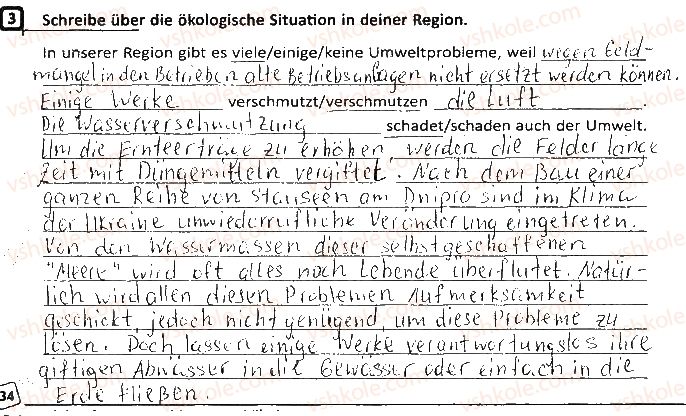 3 Schreibe über die ökologische Situation in deiner Region.
In unserer Region gibt es viele/einige/keine Umweltprobleme, weil wegen Geld-
mangel in den Betrieben alte Betriebsanlagen nicht ersetzt werden können.
Einige Werke verschmutzt/verschmutzen die Luft.
Die Wasserverschmutzung schadet/schaden auch der Umwelt.
Um die Ernteerträge zu erhöhen, werden die Felder lange
Zeit mit Düngemitteln vergiftet. Nach dem Bau einer
ganzen Reihe von Stauseen am Dnipro sind im Klima
der Ukraine unwiederrufliche Veränderung eingetreten.
Von den Wassermassen dieser selbstgeschaffenen
"Meere" wird oft alles noch Lebende überflutet. Natür-
lich wird allen diesen Problemen Aufmerksamkeit
geschickt, jedoch nicht genügend, um diese Probleme zu
lösen. Doch lassen einige Werke verantwortungslos ihre
giftigen Abwässer in die Gewässer oder einfach in die
34 Erde fließen.
vshkole.com